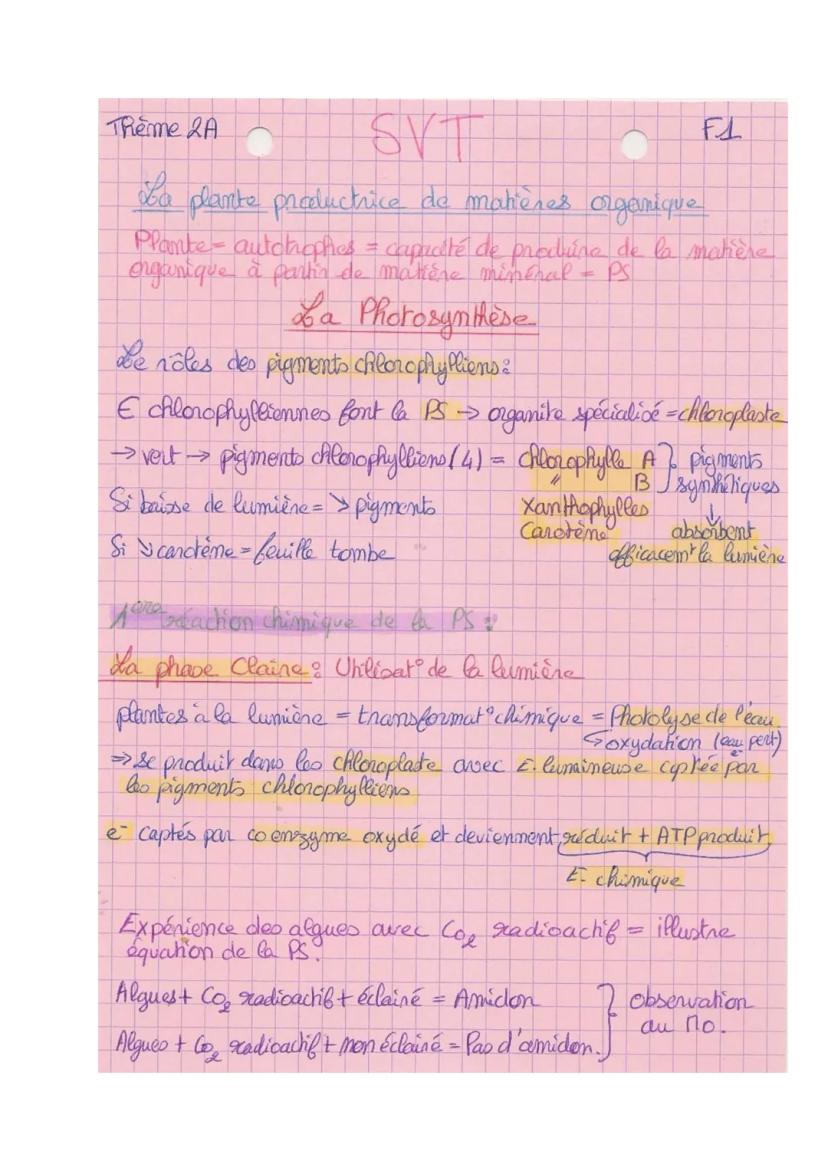 Thème 2A SVT F1
La plante productrice de matières organique
Plante = autotrophes = capacité de produire de la matière
organique à partir de matière minéral = PS
La Photosynthèse
Le rôles des pigments chlorophylliens :
E chlorophylliennes font la PS → organite spécialisé = chloroplaste
→ vert → pigments chlorophylliens (4) = chlorophylle A } pigments
" B } synthétiques
Si baisse de lumière = ↘ pigments Xanthophylles ↓
Carotène absorbent
Si ↘ carotème = feuille tombe efficacemt la lumière
1ère réaction chimique de la PS :
La phase Claire : Utilisat° de la lumière
plantes à la lumière = transformat° chimique = Photolyse de l'eau
↳ oxydation (eau perd)
e-
⇒ se produit dans les chloroplaste avec E. lumineuse captée par
les pigments chlorophylliens
e- captés par coenzyme oxydé et deviennent réduit + ATP produit
E. chimique
Expérience des algues avec Co2 radioactif = illustre
équation de la PS.
Algues + Co2 radioactif + éclairé = Amidon } observation
au Mo.
Algues + Co2 radioactif + non éclairé = Pas d'amidon. }